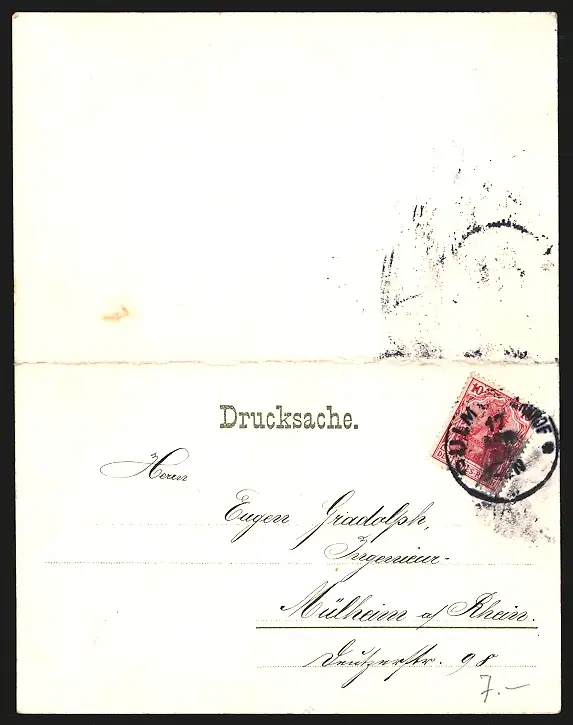 Drucksache.
10
ULM
17
Herrn
Eugen Gradolph,
Ingenieur-
Mülheim a/ Rhein.
Deutzerstr. 98
7.-